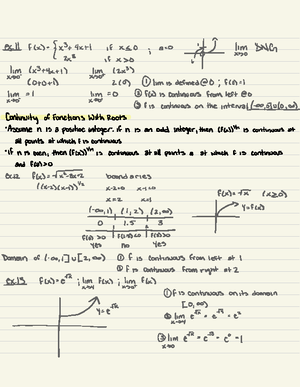 ex.11 f(x) = { x³+4x+1 if x≤0 ; a=0
2x³ if x>0
lim x→0 DNE
lim x→0⁻ (x³+4x+1) lim x→0⁺ (2x³)
(0+0+1) 2(0)
lim x→0⁻ = 1 lim x→0⁺ = 0
① lim is defined @ 0 ; f(0)=1
② f(x) is continuous from left @ 0
③ f is continuous on the interval (-∞,0]∪(0,∞)
Continuity of Functions With Roots
• Assume n is a positive integer. if n is an odd integer, then (f(x))^1/n is continuous at
all points at which f is continuous
• if n is even, then (f(x))^1/n is continuous at all points a at which f is continuous
and f(a)>0
ex.12 f(x) = √x²-3x+2 boundaries
((x-2)(x-1))^1/2 x-2=0 x-1=0
x=2 x=1
f(x)=√x (x≥0)
y=f(x)
(-∞,1) (1,2) (2,∞)
0 1.5 3
f(0)>0 f(1.5)<0 f(3)>0
yes no yes
Domain of (-∞,1]∪[2,∞) ① f is continuous from left at 1
② f is continuous from right at 2
ex.13 f(x)=e^√x ; lim x→4 f(x) ; lim x→0⁺ f(x)
① f is continuous on its domain
[0,∞)
y=e^√x
② lim x→4 e^√x = e^√4 = e²
③ lim x→0 e^√x = e^√0 = e⁰ = 1